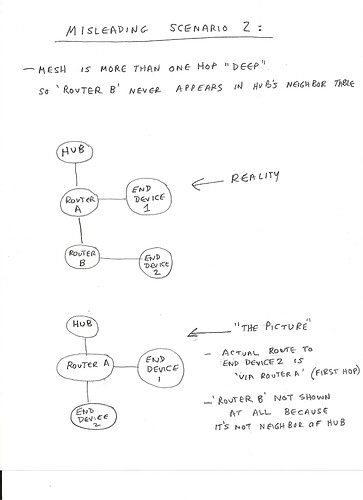 MISLEADING SCENARIO 2:
— MESH IS MORE THAN ONE HOP "DEEP"
SO 'ROUTER B' NEVER APPEARS IN HUB'S NEIGHBOR TABLE
HUB
ROUTER
A
END
DEVICE
1
REALITY
ROUTER
B
END
DEVICE
2
HUB
"THE PICTURE"
ROUTER A
END
DEVICE
1
END
DEVICE
2
- ACTUAL ROUTE TO
END DEVICE 2 IS
'VIA ROUTER A' (FIRST HOP)
- 'ROUTER B' NOT SHOWN
AT ALL BECAUSE
IT'S NOT NEIGHBOR OF HUB